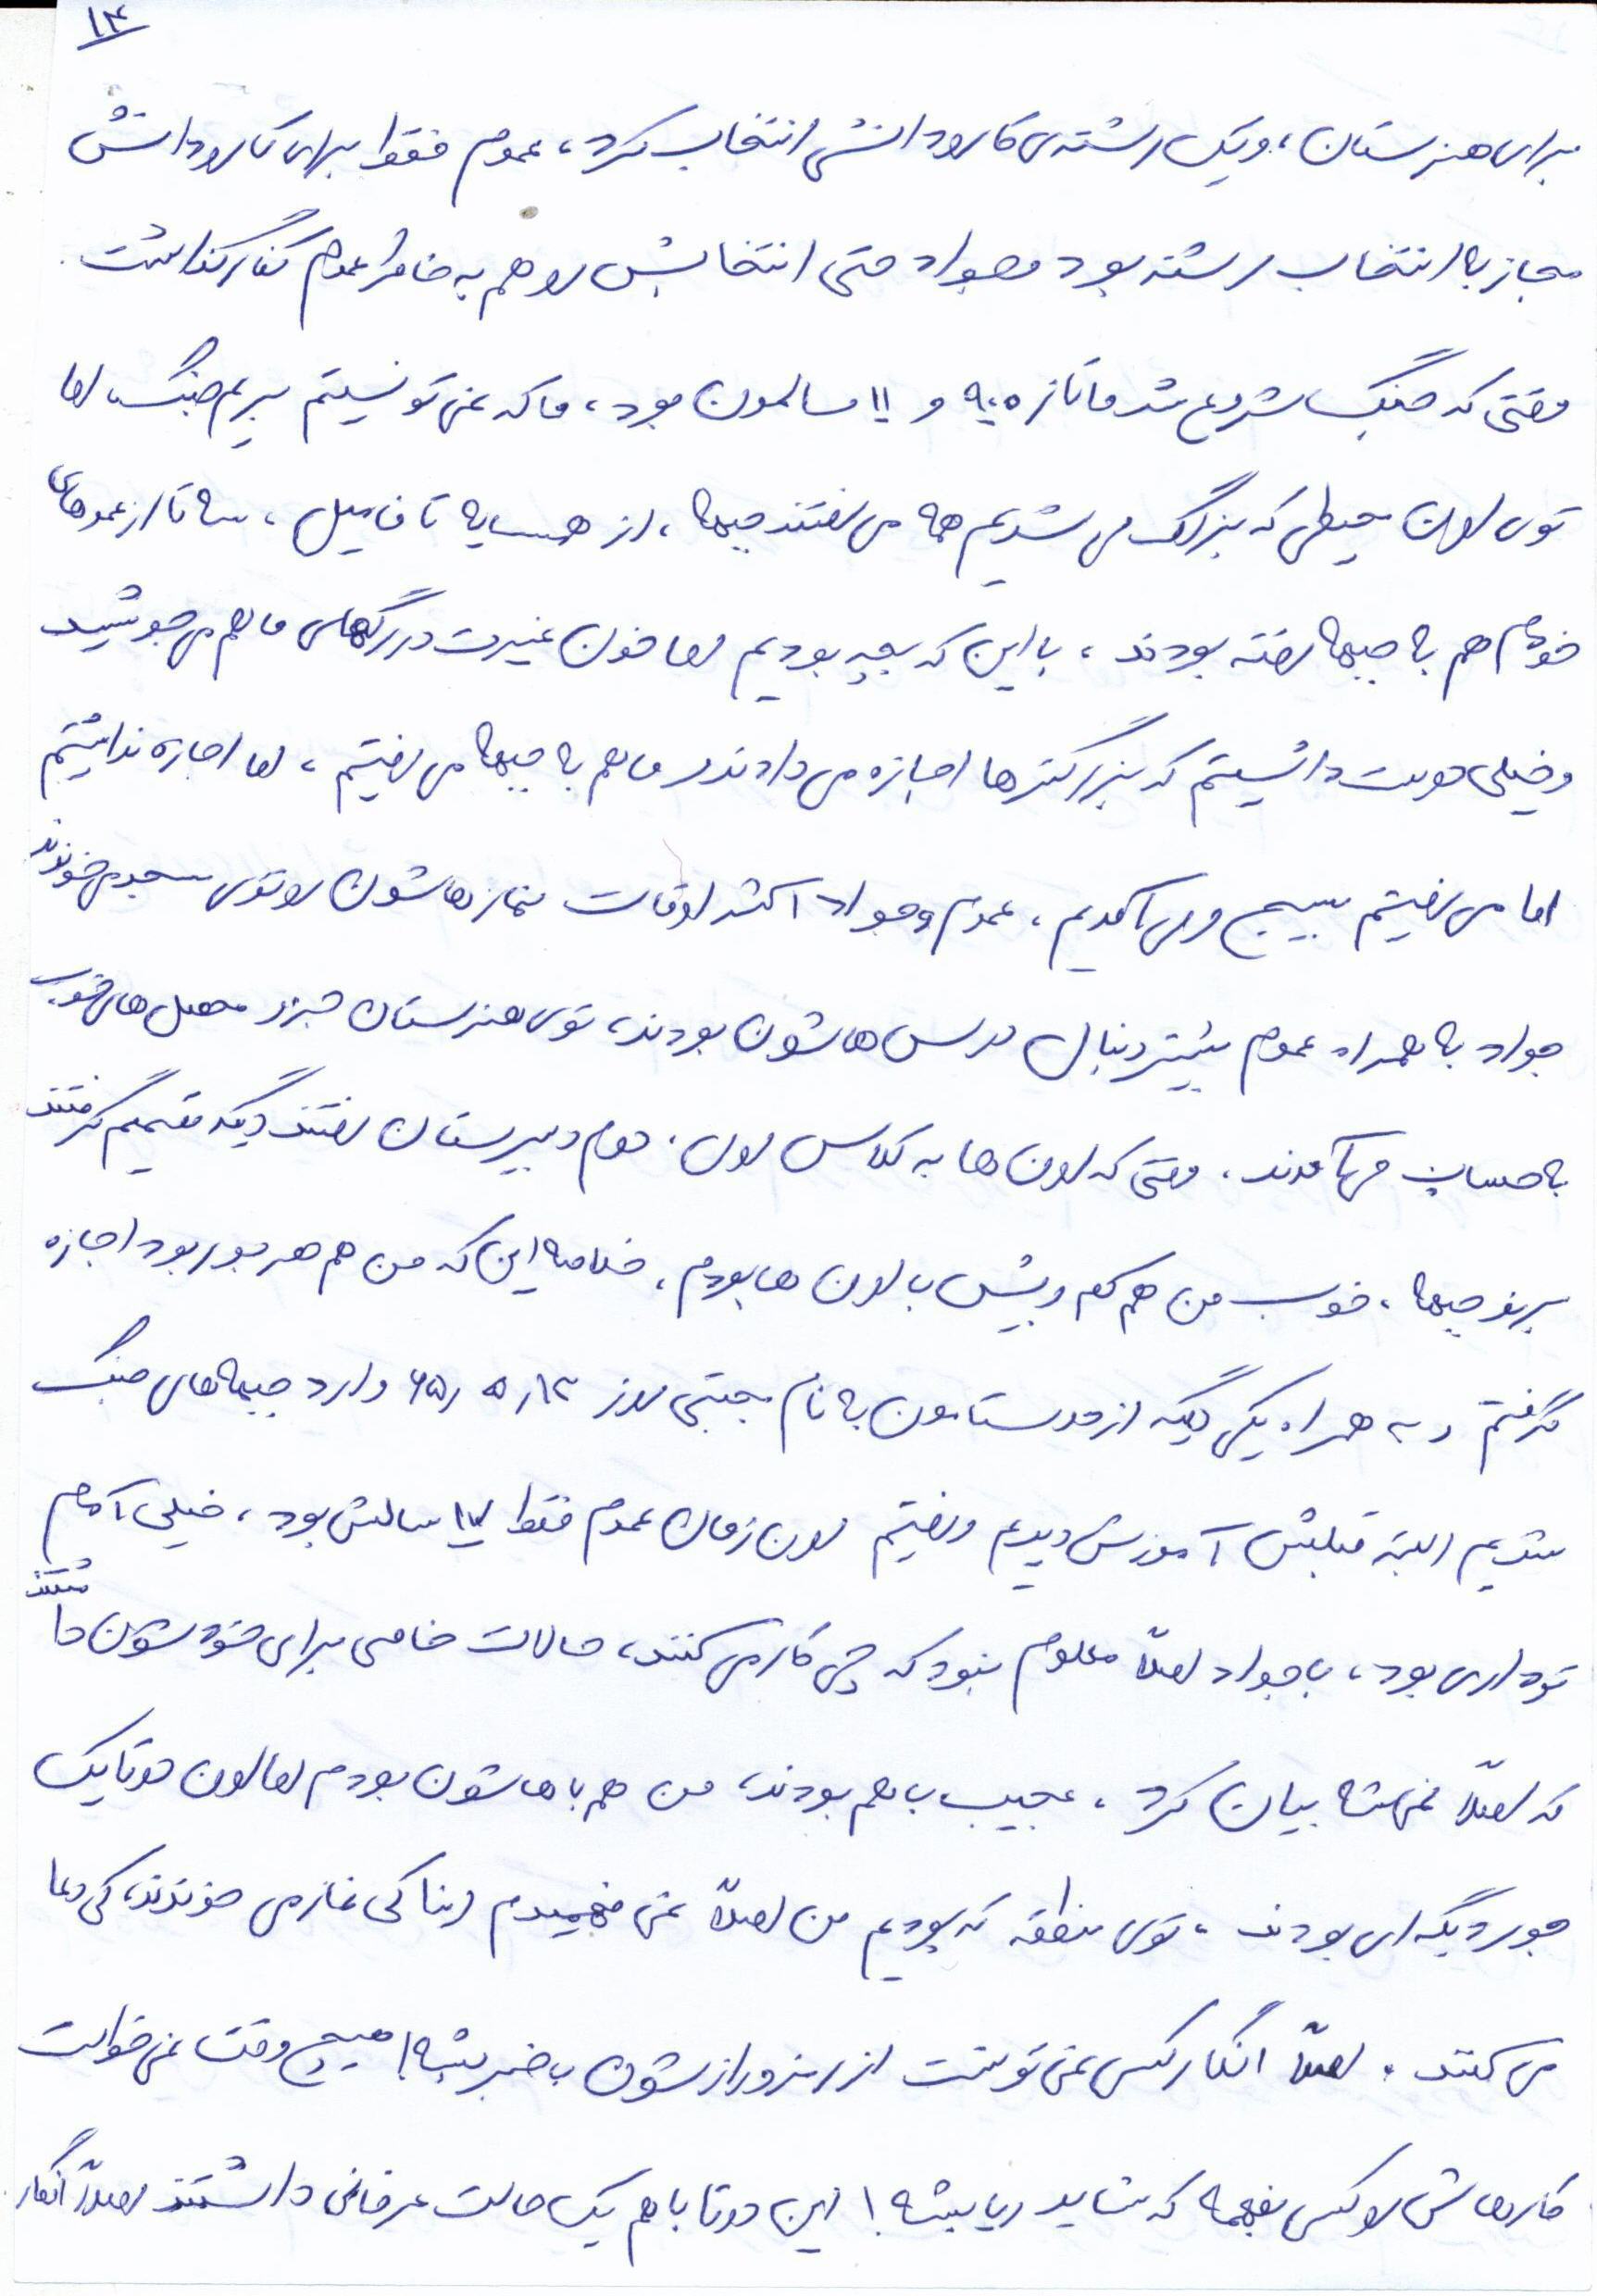 ۱۴
برای هنرستان، و یک رشته‌ی کارودانش انتخاب کرد، عموم فقط برای کارودانش
مجاز به انتخاب رشته بود و جواد حتی انتخابش رو هم به خاطر عموم کنار گذاشت.
وقتی که جنگ شروع شد ما تازه ۹،۱۰ و ۱۱ سالمون بود، ما که نمی تونستیم بریم جنگ اما
توی اون محیطی که بزرگ می شدیم همه می رفتند جبهه، از همسایه تا فامیل، سه تا از عموهای
خودم هم به جبهه رفته بودند، با این که بچه بودیم اما خون غیرت در رگهای ما هم می جوشید
و خیلی دوست داشتیم که بزرگترها اجازه می دادند و ما هم به جبهه می رفتیم، اما اجازه نداشتیم
اما می رفتیم بسیج و می آمدیم، عموم و جواد اکثر اوقات نمازهاشون رو توی مسجد می خوندند
جواد به همراه عموم بیشتر دنبال درس هاشون بودند، توی هنرستان جزء محصل های خوب
به حساب می آمدند. وقتی که اون ها به کلاس اول، دوم دبیرستان رفتند دیگه تصمیم گرفتند
برند جبهه، خوب من هم کم و بیش با اون ها بودم، خلاصه این که من هم هر جور بود اجازه
گرفتم و به همراه یکی دیگه از دوستامون به نام مجتبی روز ۶۵٫۵٫۱۲ وارد جبهه های جنگ
شدیم البته قبلش آموزش دیدیم و رفتیم اون زمان عموم فقط ۱۷ سالش بود، خیلی آدم
توداری بود، با جواد اصلاً معلوم نبود که چی کار می کنند، حالات خاصی برای خودشون داشتند
که اصلاً نمی شه بیان کرد، عجیب با هم بودند، من هم باهاشون بودم اما اون دو تا یک
جور دیگه ای بودند، توی منطقه که بودیم من اصلاً نمی فهمیدم اینا کی نماز می خوندند، کی دعا
می کنند. اصلاً انگار کسی نمی تونست از رمز و رازشون با خبر بشه! هیچ وقت نمی خواست
کارهاش رو کسی بفهمه که شاید ریا بشه! این دو تا با هم یک حالت عرفانی داشتند اصلاً انگار